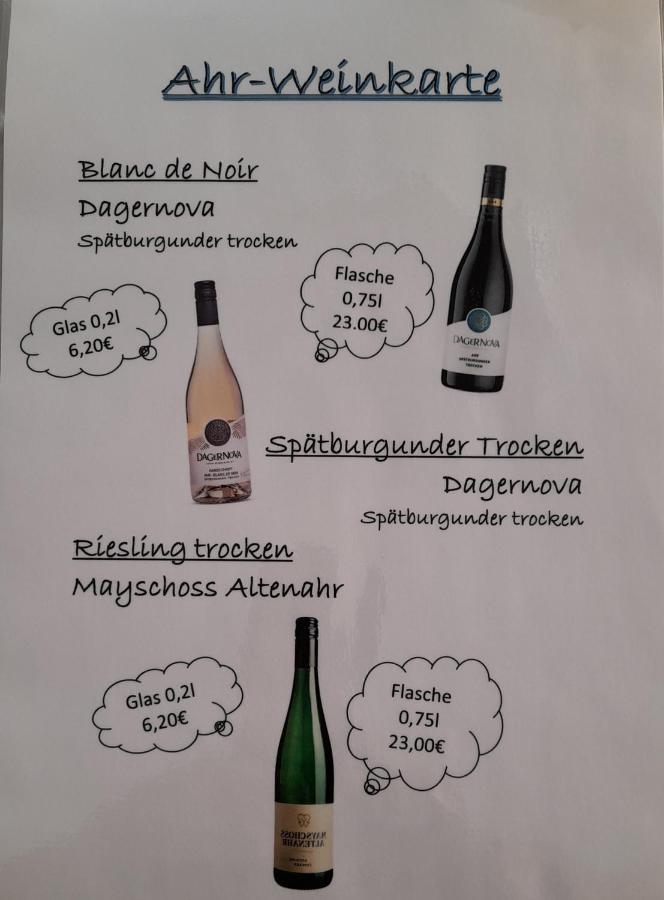 Ahr-Weinkarte
Blanc de Noir
Dagernova
Spätburgunder trocken
Glas 0,2l
6,20€
Flasche
0,75l
23.00€
DAGERNOVA
AHR
SPÄTBURGUNDER
TROCKEN
DAGERNOVA
Spätburgunder Trocken
Dagernova
Spätburgunder trocken
Riesling trocken
Mayschoss Altenahr
Glas 0,2l
6,20€
Flasche
0,75l
23,00€
MAYSCHOSS
ALTENAHR